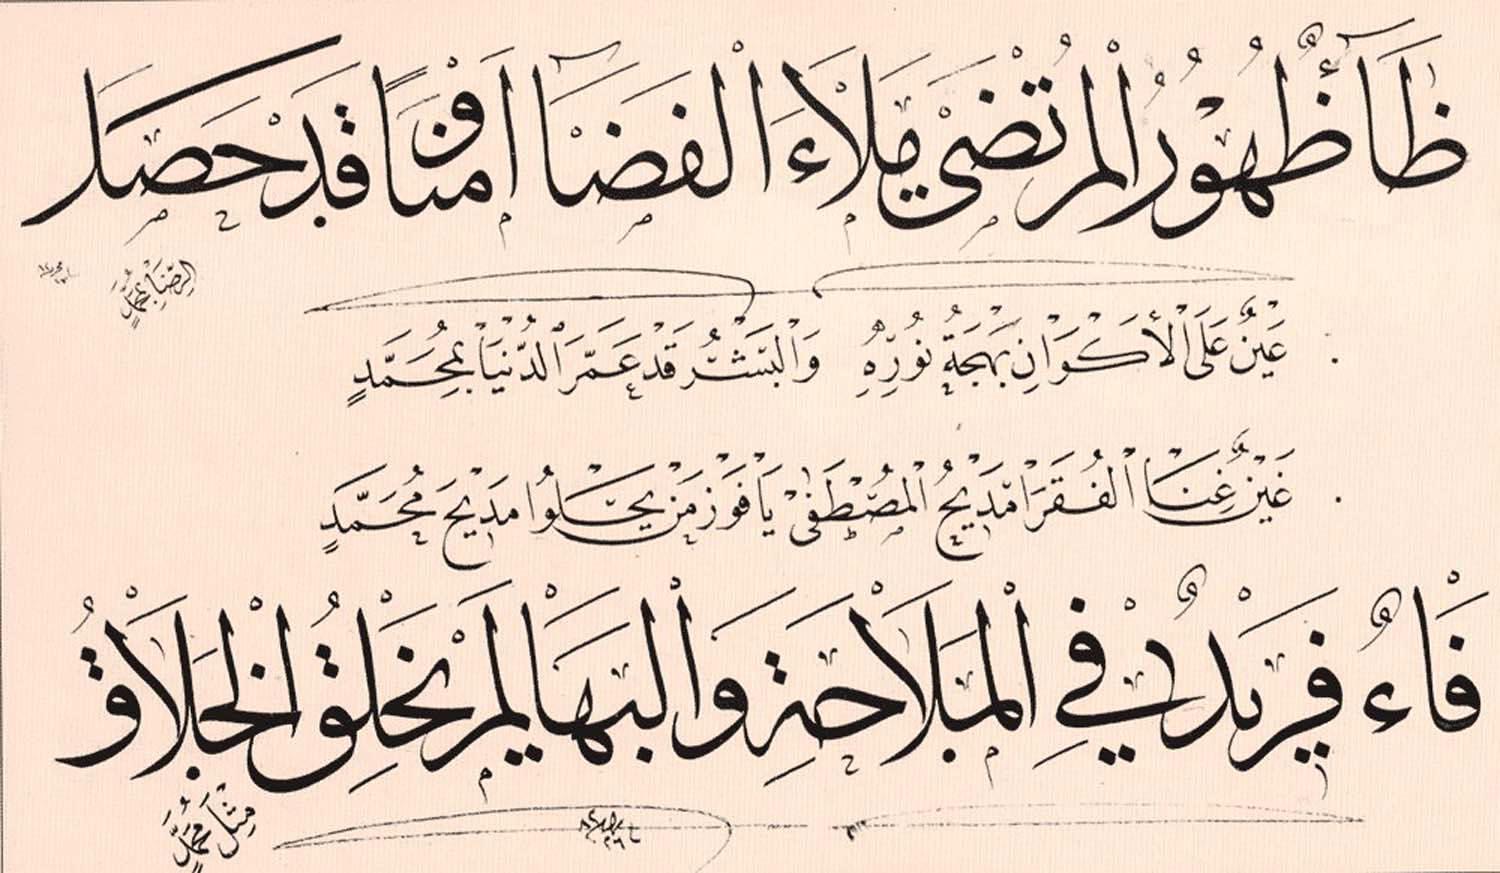 ظَآءٌ ظُهُورُ الْمُرْتَضَىٰ مَلَأَ الْفَضَآ اَمْنًا وَ قَدْ حَصَلَ
الرِّضَا بِمُحَمَّدٍ
عَيْنٌ عَلَى الْأَكْوَانِ بَهْجَةُ نُورِهِ وَالْبَشَرُ قَدْ عَمَّرَ الدُّنْيَا بِمُحَمَّدٍ
غَيْنٌ غِنَا الْفُقَرَا مَدِيحُ الْمُصْطَفَىٰ يَا فَوْزَ مَنْ يَحْلُوا مَدِيحَ مُحَمَّدٍ
فَاءٌ فَرِيدٌ فِي الْمَلَاحَةِ وَالْبَهَا لَمْ يَخْلُقُ الْخَلَّاقُ
مِثْلَ مُحَمَّدٍ